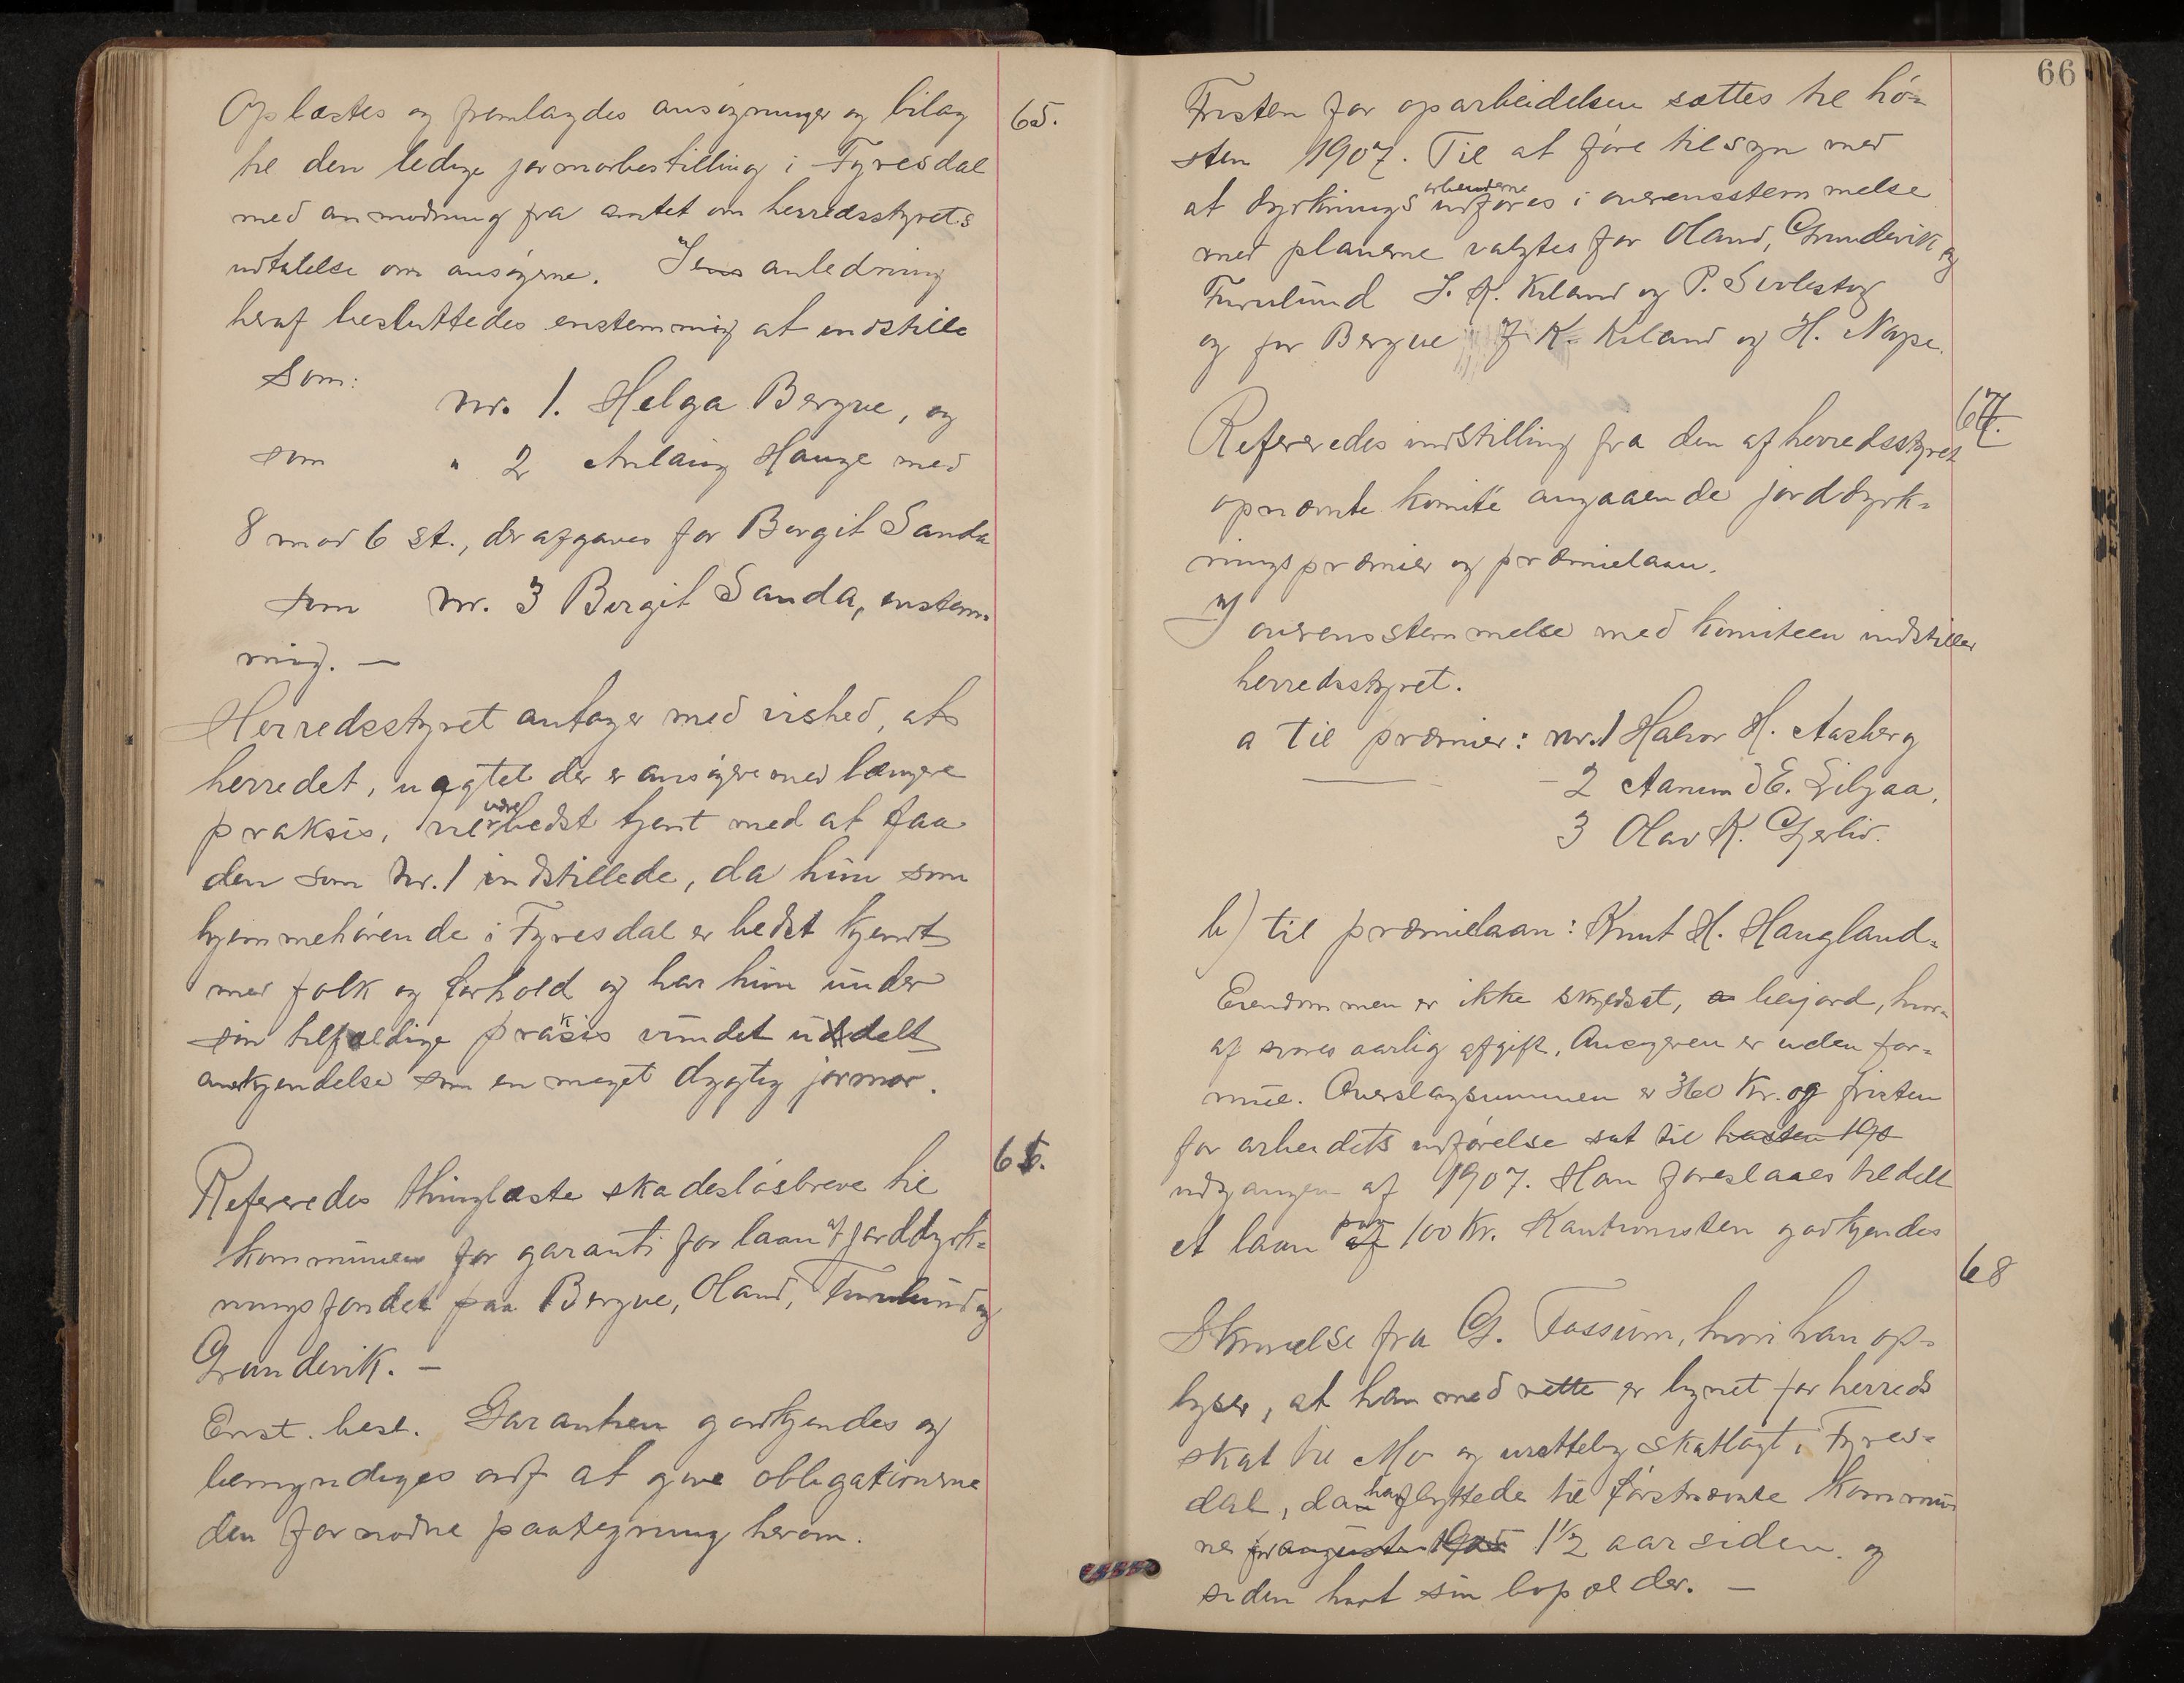 65.
Oplæstes og fremlagdes ansøgninger og bilag
til den ledige jormorbestilling i Fyresdal
med anmodning fra amtet om herredsstyrets
udtalelse om ansøgerne. I anledning
heraf besluttedes enstemmig at indstille
Som: Nr. 1. Helga Bergue, og
som " 2 Anlaug Hauge med
8 mod 6 st., der afgaves for Bergit Sanda
som Nr. 3 Birgit Sanda, enstem-
mig. —
Herredsstyret antager med vished, at
herredet, uagtet der er ansøgere med længere
praksis, vil være bedst tjent med at faa
den som Nr. 1 indstillede, da hun som
hjemmehørende i Fyresdal er bedst kjendt
med folk og forhold og har hun under
sin tilfældige praksis vundet udelt
anerkjendelse som en meget dygtig jormor.
66.
Refereredes thinglæste skadesløsbreve til
kommunen for garanti for laan af jorddyrk-
ningsfondet paa Bergue, Oland, Furulund og
Grundevik. —
Enst. besl. Garantien godkjendes og
bemyndiges ordf at give obligationerne
den fornødne paategning herom.
66
Fristen for oparbeidelsen sættes til hø-
sten 1907. Til at føre tilsyn med
at dyrknings arbeiderne udføres i overensstemmelse
med planerne valgtes for Oland, Grundevik og
Furulund J. K. Kiland og P.
og for Bergue J K. Kiland og H. Nape.
67.
Refereredes indstilling fra den af herredsstyret
opnævnte komite angaaende jorddyrk-
ningspræmier og præmielaan.
I overensstemmelse med komiteen indstiller
herredsstyret.
a til præmier: nr. 1 Halvor H. Aasberg
— 2 Aanund E. Liljaa,
3 Olav K. Gjerliv.
b) til præmielaan: Knut H. Haugland.
Eiendommen er ikke skyldsat, leijord, hvor-
af svares aarlig afgift. Ansøgeren er uden for-
mue. Overslagsummen er 360 Kr. og fristen
for arbeidets udførelse sat til høsten 190
udgangen af 1907. Han foreslaaes tildelt
et laan paa 100 Kr. Kautionisten godkjendes
68
Skrivelse fra G. Fossum, hvori han op-
lyser, at han med rette er lignet for herreds
skat til Mo og urettelig skatlagt i Fyres-
dal, da han flyttede til førstnævnte kommu
ne for august 1905 1½ aar siden og
siden havt sin bopæl der. —